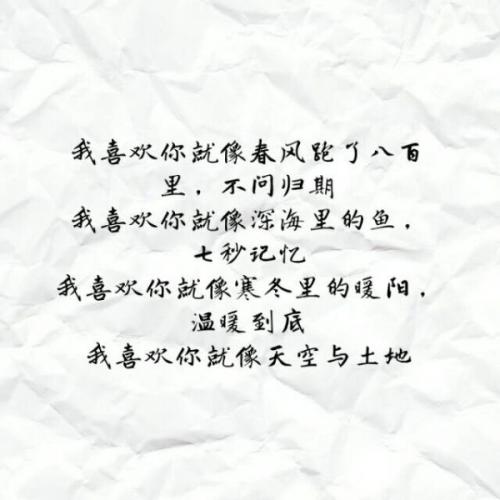 我喜欢你就像春风跑了八百
里，不问归期
我喜欢你就像深海里的鱼，
七秒记忆
我喜欢你就像寒冬里的暖阳，
温暖到底
我喜欢你就像天空与土地